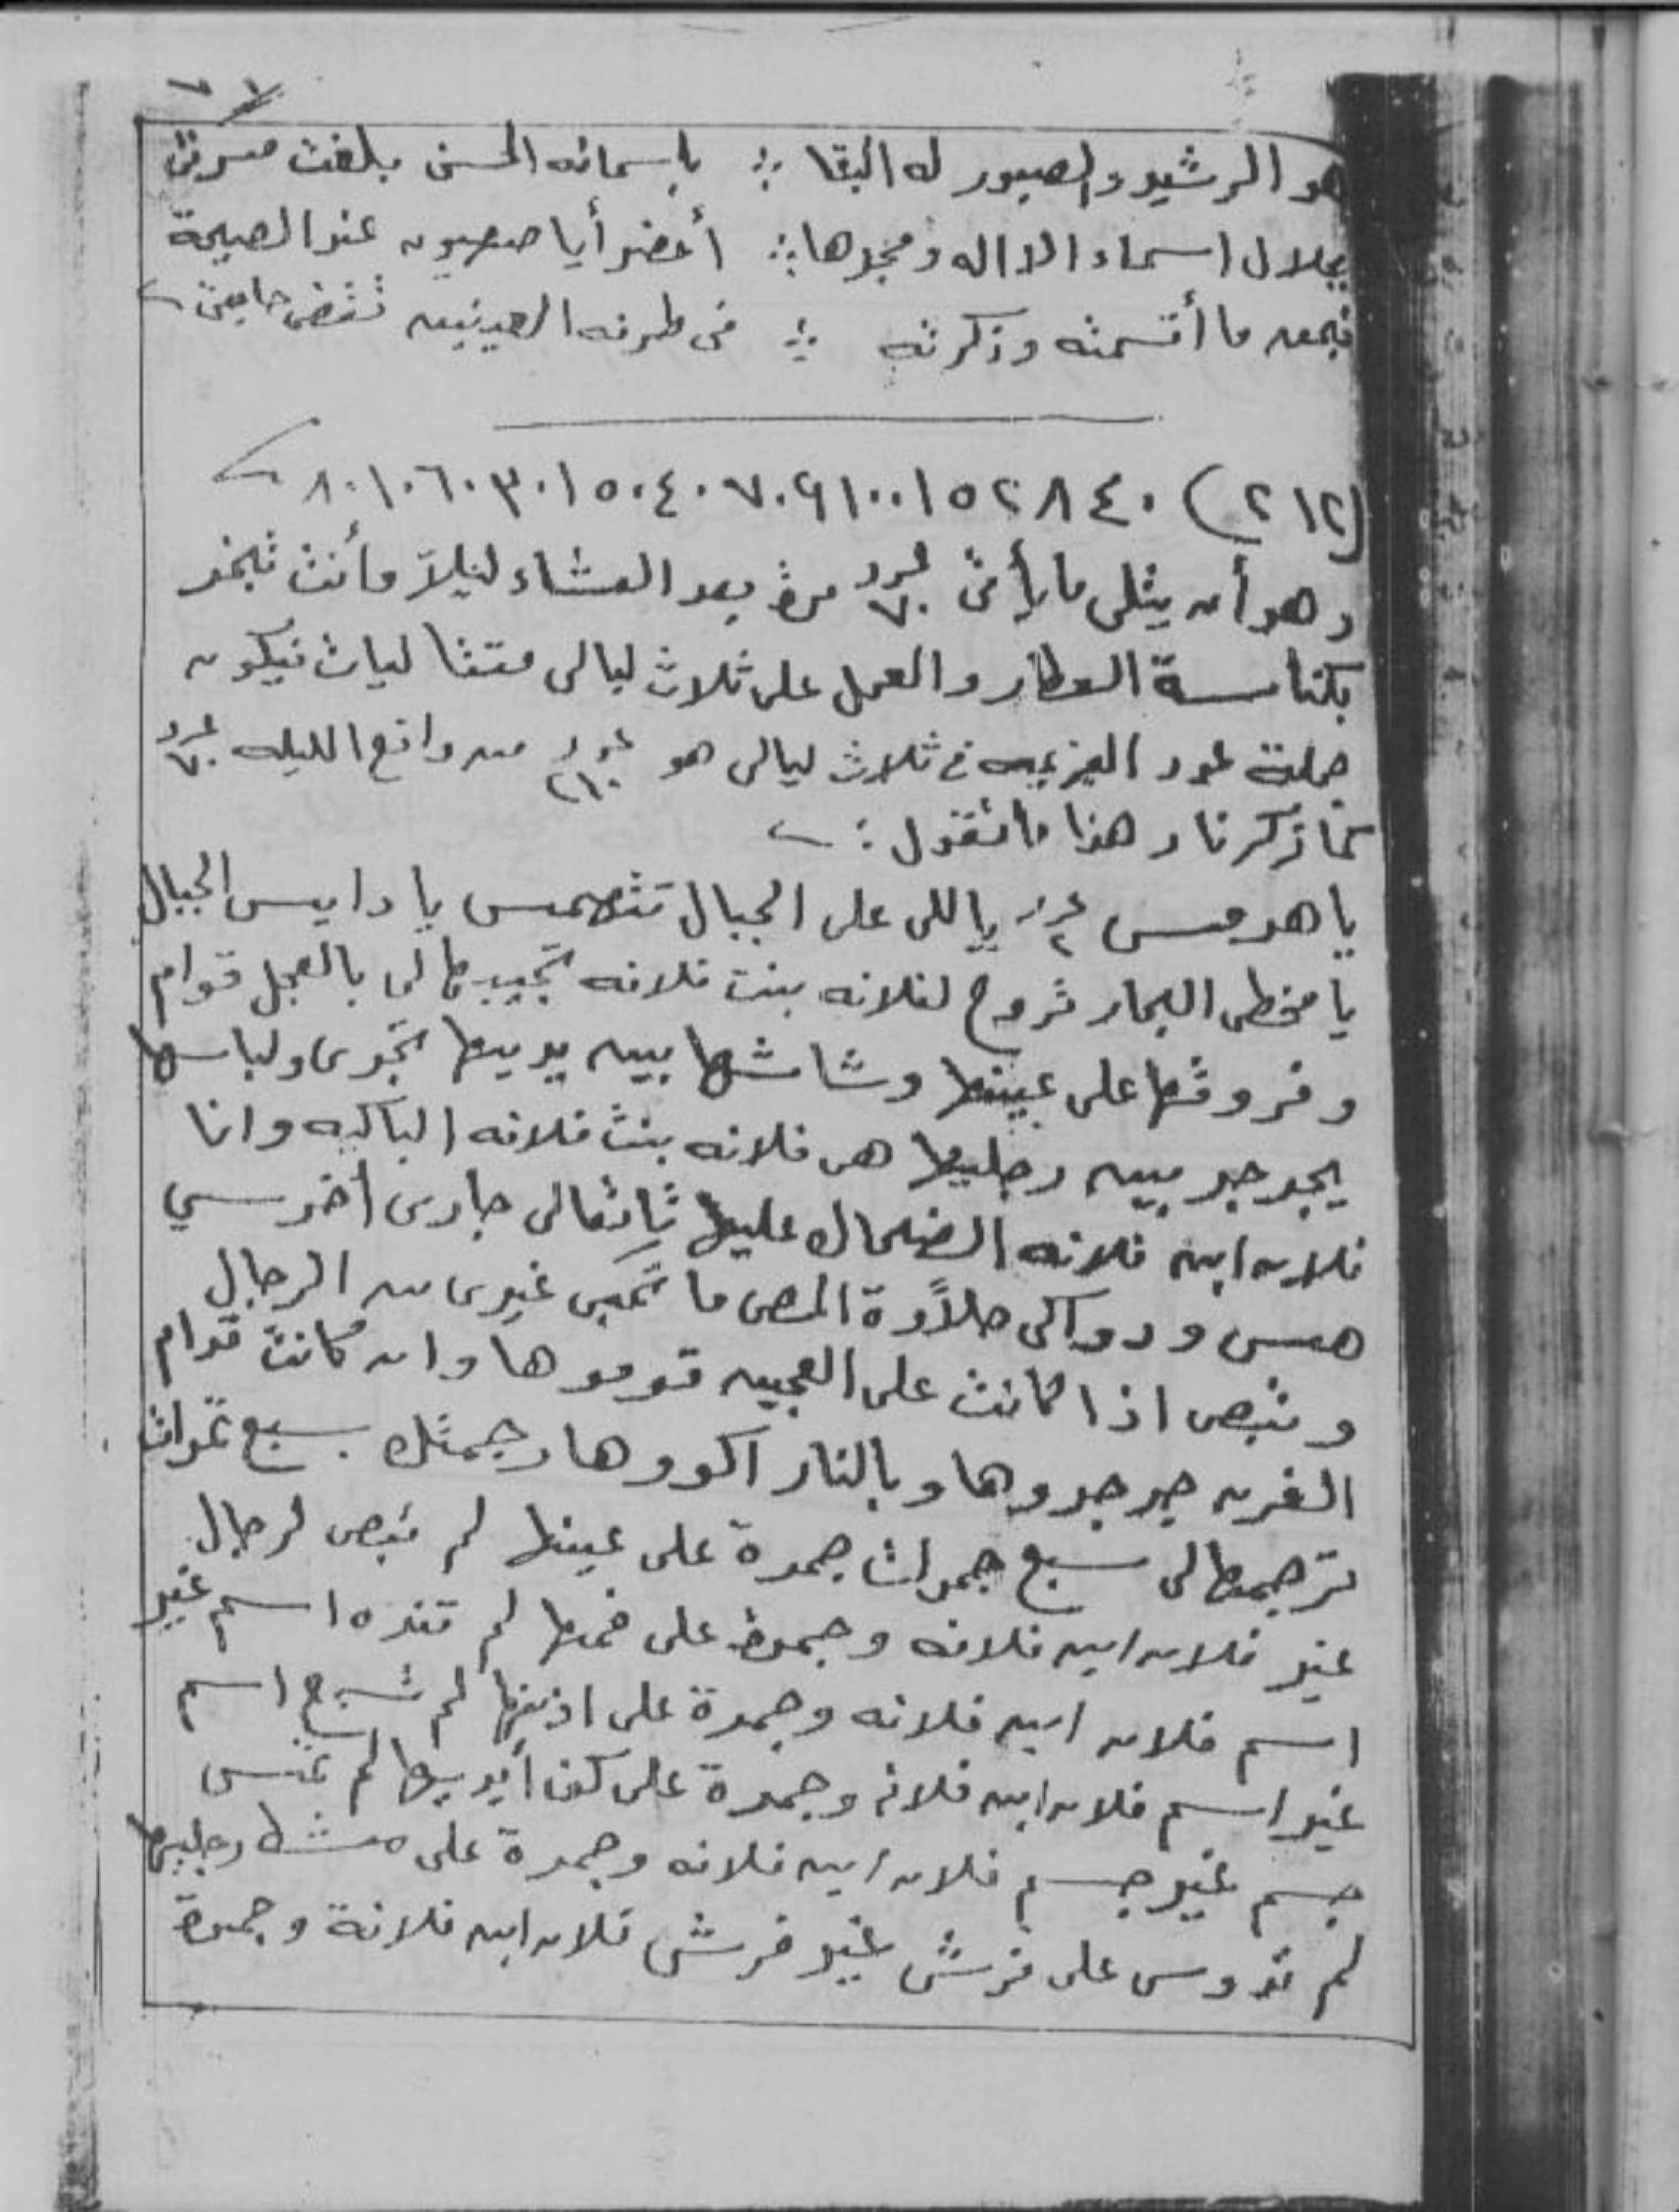 هو الرشيد والصبور له البقا ∴ بأسمائه الحسنى بلغت مسرتى
بجلال اسماء الاله ومجدها ∴ أحضر أيا صعيون عند الصيحة
فبحق ما أقسمته وذكرته ∴ فى طرفه العينين تقضى حاجتى
(٢١٢) ٨٠١٠٦٠٣٠١٥٠٤٠٧٠٩١٠٠١٥٢٨٤٠
وهو أن يتلى ما يأتى عدد ٧٠ مرة بعد العشاء ليلاً وأنت تبخر
بكناسة العطار والعمل على ثلاث ليالى متتاليات فيكون
جملة عدد العزيمه فى ثلاث ليالى هو عدد ٢١٠ من واقع الليله عدد ٧٠
كما ذكرنا وهذا ما تقول :
يا هدمس عدد ٢ ياللى على الجبال تتهمس يا دايس الجبال
يا مخطى البحار تروح لفلانه بنت فلانه تجيبها لى بالعجل قوام
وفروتها على عينها وشاشها بين يديها تجرى ولباسها
يجرجر بين رجليها هى فلانه بنت فلانه الباكيه وانا
فلان ابن فلانه الضحاك عليها تاتعالى جارى أخرسي
همس ودواكى حلاوة المص ما تحبى غيرى من الرجال
وتبص اذا كانت على العجين قوموها وان كانت قدام
الفرن جرجروها وبالنار اكووها رجمتك بسبع تمرات
ترجمها لى سبع جمرات جمرة على عينها لم تبص لرجال
غير فلان ابن فلانه وجمرة على فمها لم تنده اسم غير
اسم فلان ابن فلانه وجمرة على اذنها لم تسمع اسم
غير اسم فلان ابن فلانه وجمرة على كف أيديها لم تمس
جسم غير جسم فلان ابن فلانه وجمرة على مشط رجليها
لم تدوس على فرش غير فرش فلان ابن فلانة وجمرة